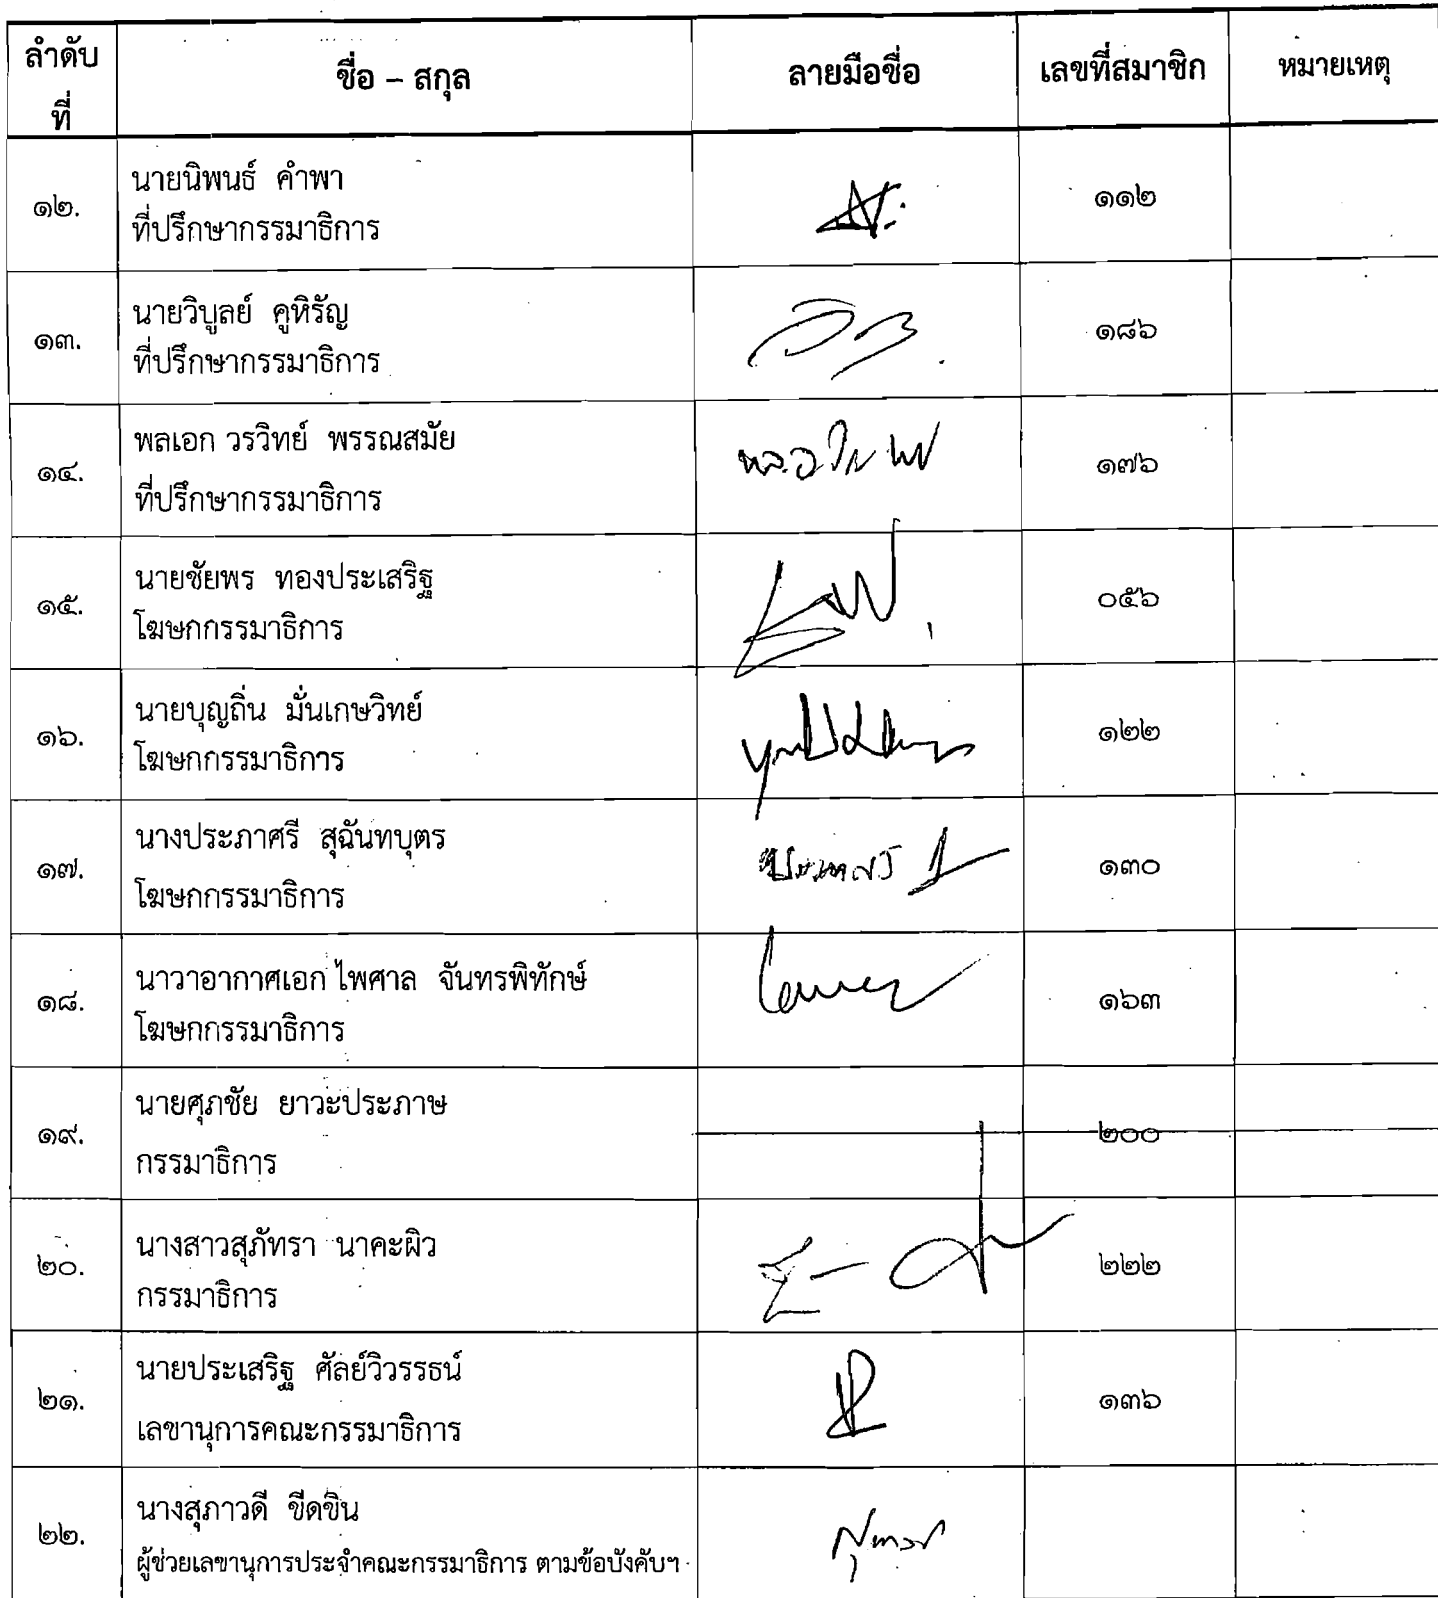 ลำดับที่ ชื่อ – สกุล ลายมือชื่อ เลขที่สมาชิก หมายเหตุ
๑๒. นายนิพนธ์ คำพา ๑๑๒
ที่ปรึกษากรรมาธิการ
๑๓. นายวิบูลย์ คูหิรัญ ๑๘๖
ที่ปรึกษากรรมาธิการ
๑๔. พลเอก วรวิทย์ พรรณสมัย ๑๗๖
ที่ปรึกษากรรมาธิการ
๑๕. นายชัยพร ทองประเสริฐ ๐๕๖
โฆษกกรรมาธิการ
๑๖. นายบุญถิ่น มั่นเกษวิทย์ ๑๒๒
โฆษกกรรมาธิการ
๑๗. นางประภาศรี สุฉันทบุตร ๑๓๐
โฆษกกรรมาธิการ
๑๘. นาวาอากาศเอก ไพศาล จันทรพิทักษ์ ๑๖๓
โฆษกกรรมาธิการ
๑๙. นายศุภชัย ยาวะประภาษ ๒๐๐
กรรมาธิการ
๒๐. นางสาวสุภัทรา นาคะผิว ๒๒๒
กรรมาธิการ
๒๑. นายประเสริฐ ศัลย์วิวรรธน์ ๑๓๖
เลขานุการคณะกรรมาธิการ
๒๒. นางสุภาวดี ขีดขิน
ผู้ช่วยเลขานุการประจำคณะกรรมาธิการ ตามข้อบังคับฯ